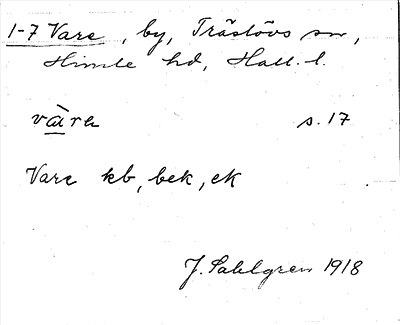 1-7 Vare, by, Träslövs sn,
Himle hd, Hall. l.
vàra s. 17
Vare kb, bek, ek
J. Sahlgren 1918